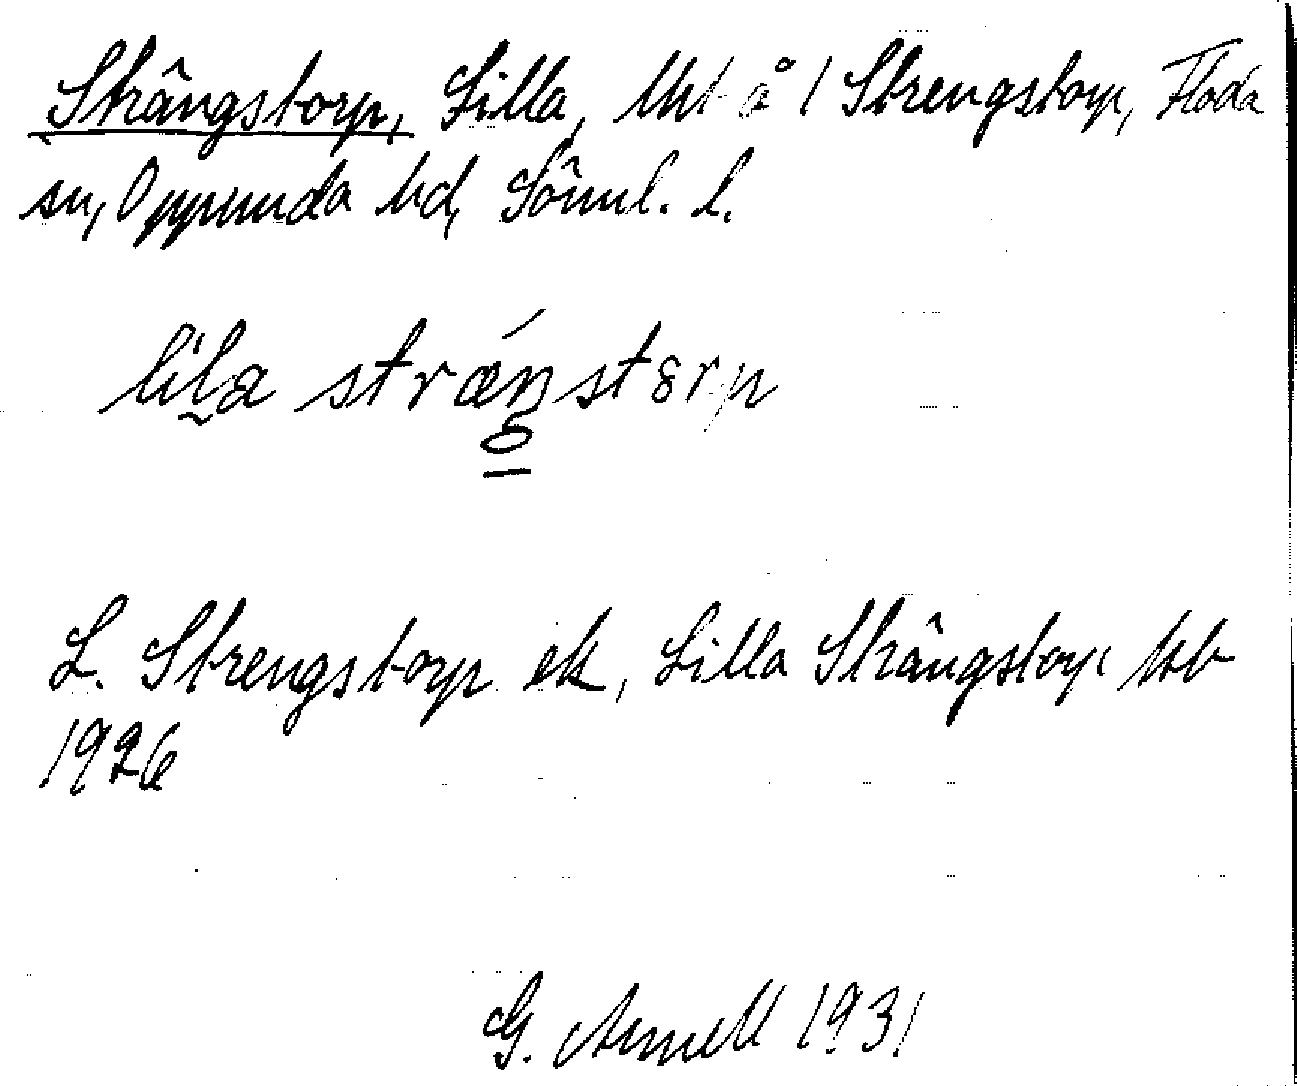 Strängstorp, Lilla, lht å 1 Strengstorp, Floda
sn, Oppunda hd, Söml. l.
lila stræŋstərp
L. Strengstorp ek, Lilla Strängstorp kb
1926
G. Arnell 1931